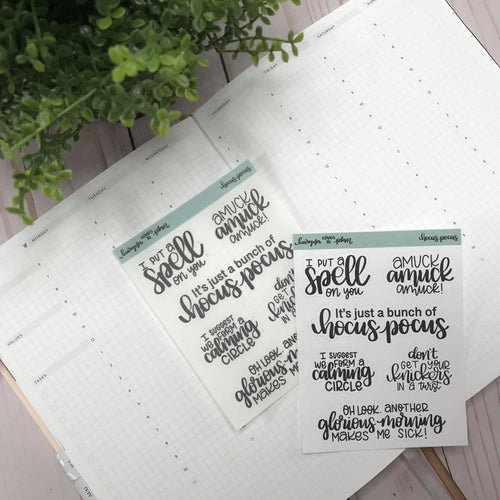 SATURDAY
SUNDAY
THURSDAY
FRIDAY
MONDAY
TUESDAY
WEDNESDAY
VALUES
TASKS
hocus pocus
I PUT A
spell
on you
AMUCK
amuck
amuck!
It's just a bunch of
hocus pocus
I SUGGEST
WE FORM A
calming
CIRCLE
don't
GET YOUR
knickers
IN A
OH LOOK, ANOTHER
glorious morning
MAKES ME
hocus pocus
I PUT A
spell
on you
AMUCK
amuck
AMUCK!
It's just a bunch of
hocus pocus
I SUGGEST
WE FORM A
calming
CIRCLE
don't
GET YOUR
knickers
IN A twist
OH LOOK, ANOTHER
glorious morning
MAKES ME SICK!